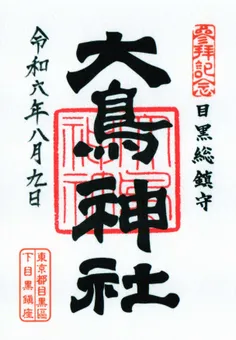 參拝記念
目黒総鎮守
大鳥神社
令和六年八月九日
東京都目黒區
下目黒鎮座